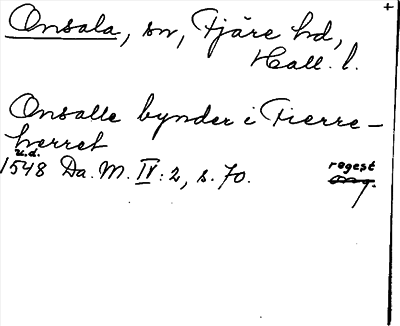 Onsala, sn, Fjäre hd,
Hall. l.
Onsalle bynder i Fierre-
herret
u.d.
1548 Da. M. IV: 2, s. 70.
regest
+